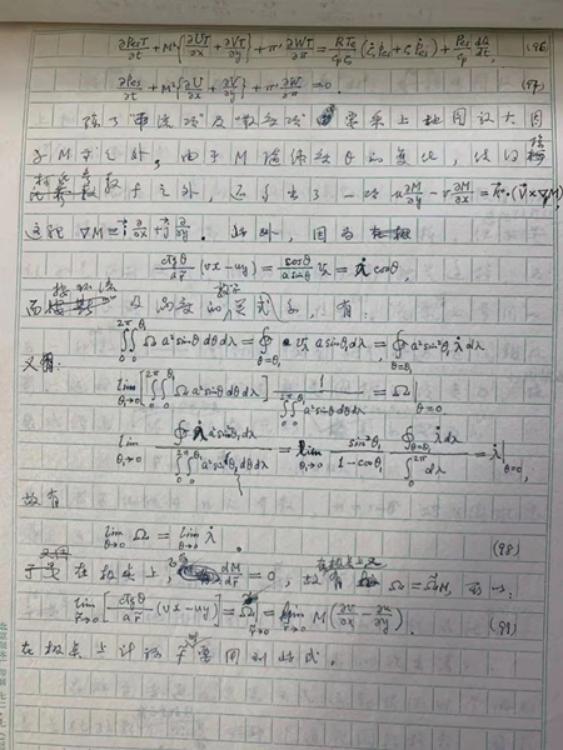 ∂P_es T/∂t + M²{∂UT/∂x + ∂VT/∂y} + π ∂WT/∂π = RT_e/(C_p ς) (ς̇ P_es + ς Ṗ_es) + P_es/C_p dQ/dt, (96
∂P_es/∂t + M²{∂U/∂x + ∂V/∂y} + π ∂W/∂π = 0. (97)
除了"平流项"及"散度项"要乘上地图放大因
子M于之外,由于M随纬度θ的变化,使得
参数 于之外,还多出了一项 u∂M/∂y − v∂M/∂x = k·(V×∇M),
这里 ∇M = i ∂/∂x + j ∂/∂y. 此外,因为
ctgθ/(a r̃) (vx−uy) = cosθ/(a sinθ) v_λ = λ̇ cosθ,
而 及高度的 关系,有:
∫₀^{2π}∫₀^{θ₁} Ω a² sinθ dθdλ = ∮_{θ=θ₁} v_λ a sinθ₁ dλ = ∮_{θ=θ₁} a² sin²θ₁ λ̇ dλ
又有:
lim_{θ₁→0} [∫₀^{2π}∫₀^{θ₁} Ω a² sinθ dθdλ] 1/(∫₀^{2π}∫₀^{θ₁} a² sinθ dθdλ) = Ω|_{θ=0}
lim_{θ₁→0} ∮ λ̇ a² sin²θ₁ dλ/(∫₀^{2π}∫₀^{θ₁} a² sinθ dθdλ) = lim_{θ₁→0} sin²θ₁/(1−cosθ₁) ∮_{θ=θ₁} λ̇ dλ/∫₀^{2π} dλ = λ̇|_{θ=0},
故有
lim_{θ→0} Ω = lim_{θ→0} λ̇. (98)
于是在极点上, dM/dr̃ = 0, 故在极点上又有 Ω = Ω̃M, 可以:
lim_{r̃→0} [ctgθ/(a r̃) (vx−uy)] = Ω|_{r̃→0} = lim_{r̃→0} M(∂v/∂x − ∂u/∂y). (99)
在极点上计算 r̃ 时要用到此式。